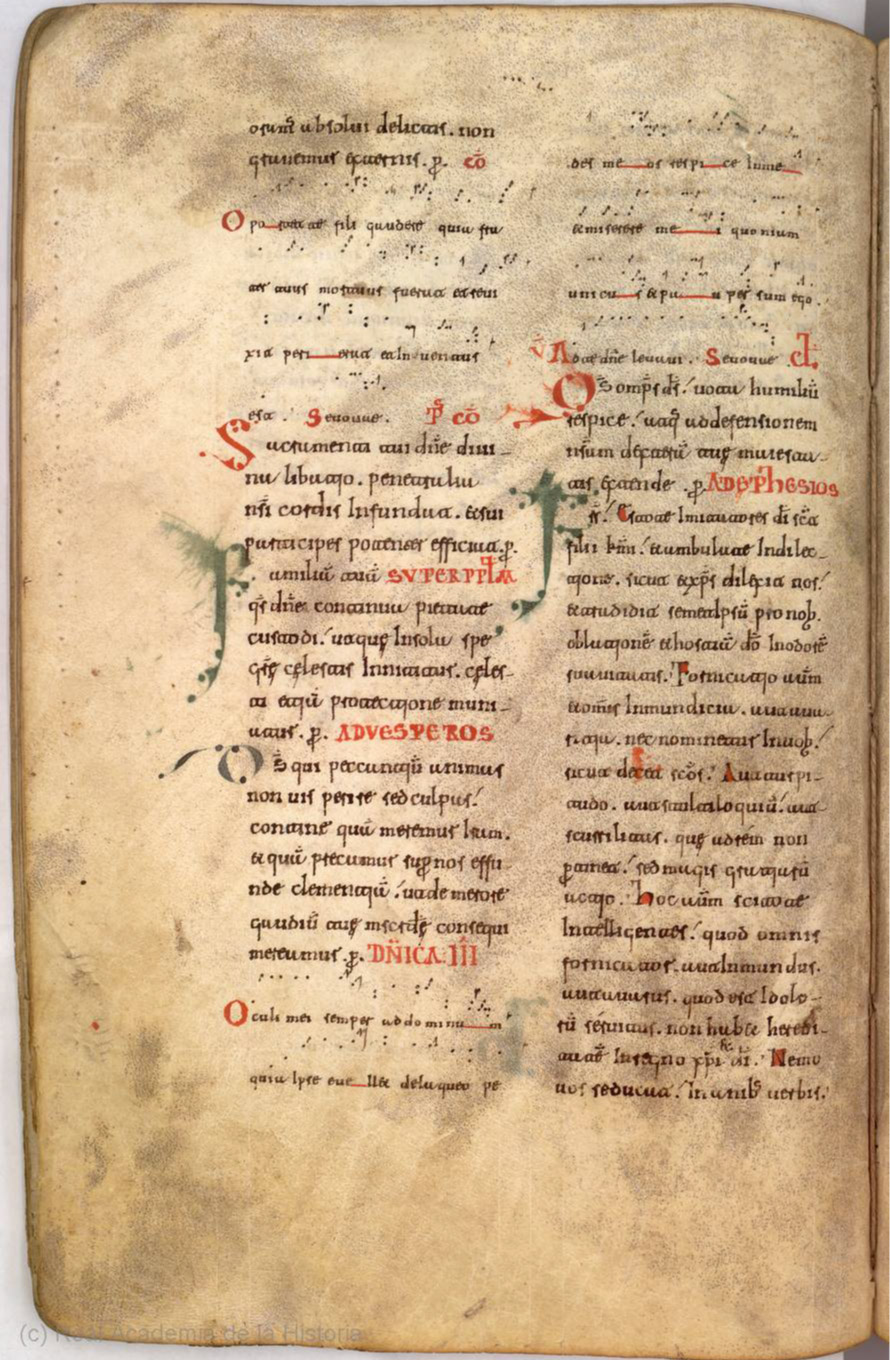 absolui delictis. non
grauemur externis. p̄. cō
Oportet te fili gaudere quia fra
ter tuus mortuus fuerat et reui
xit peri erat et Inuentus
est. Seuouae. cō
Sacramenti tui dn̄e diui-
na libatio. penetralia
nr̄i cordis Infundat. et sui
participes potenter efficiat. p̄.
Familiā tuā SVPER PPLM
qs̄ dn̄e continua pietate
custodi. ut quę In sola spe
grę̄ cęlestis Innititur. cęles-
ti etiā protectione muni-
atur. p̄. AD VESPEROS
Ds̄ qui peccantiū animas
non uis perire sed culpas.
contine quā meremur Iram.
et quā precamur sup̄ nos effu
nde clementiā. ut de merore
gaudiū tuę mscdę̄ consequi
mereamur. p̄. DN̄ICA III
Oculi mei semper ad dominum
quia Ipse euellet de laqueo pe
des meos respice In me
et miserere mei quonium
unicus et pauper sum ego.
V̄ Ad te dn̄e leuaui. Seuouae cl̄.
Qs̄ omp̄s ds̄. uota humiliū
respice. atq̄ ad defensionem
nr̄am dexterā tuę maiesta-
tis extende. p̄. AD EPHESIOS
Fr̄s. Estote Imitatores dī sic̄
filii km̄i. et ambulate In dilec-
tione. sicut et xp̄s dilexit nos.
et tradidit semet Ipsū pro nob̄.
oblationē et hostiā dō In odorē
suauitatis. Fornicatio aūm
et om̄is Inmundicia. aut aua-
ritia. nec nominetur In uob̄.
sicut decet scōs. Aut turpi-
tudo. aut stultiloquiū. aut
scurrilitas. quę ad rem non
p̄tinet. sed magis gratiarū
actio. Hoc aūm scitote
Intelligentes. quod omnis
fornicator. aut Inmundus.
aut auarus. quod est Idolo-
rū seruitus. non habet heredi-
tatē In regno xp̄i et dī. Nemo
uos seducat. Inanib; uerbis.
(c) Real Academia de la Historia